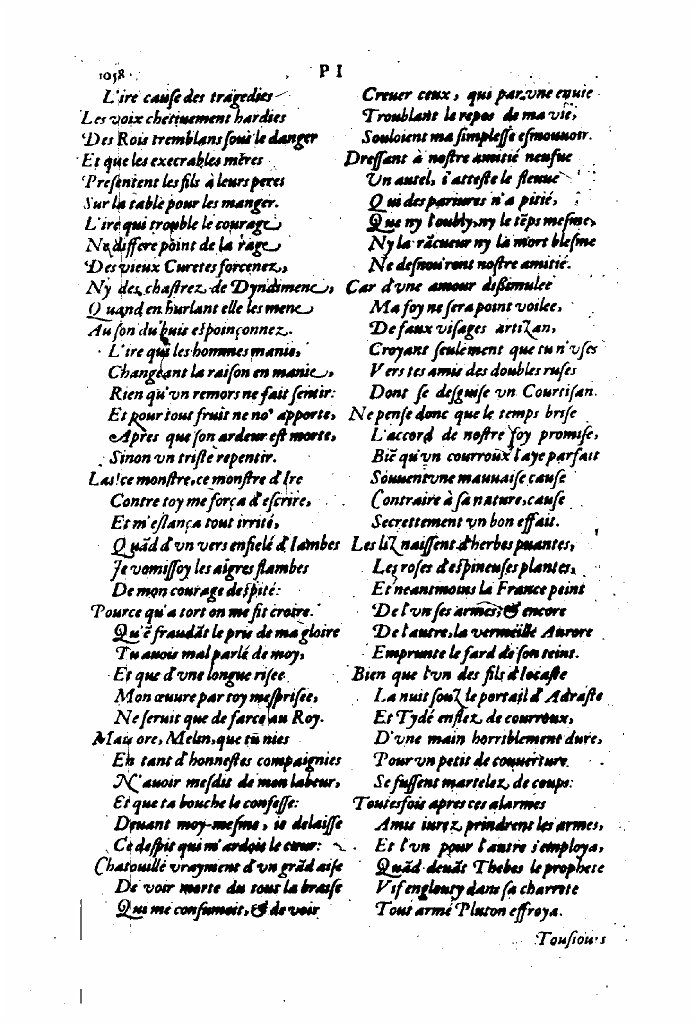 1058.
P I
L'ire cause des tragedies
Les voix chetiuement hardies
Des Rois tremblans souz le danger
Et que les execrables meres
Presentent les fils à leurs peres
Sur la table pour les manger.
L'ire qui trouble le courage
Ne differe point de la rage
Des vieux Curetes forcenez,
Ny des chastrez de Dyndimene,
Quand en hurlant elle les mene
Au son du buis espoinçonnez.
L'ire qui les hommes manie,
Changeant la raison en manie,
Rien qu'vn remors ne fait sentir:
Et pour tout fruit ne no⁹ apporte,
Apres que son ardeur est morte,
Sinon vn triste repentir.
Las! ce monstre, ce monstre d'Ire
Contre toy me força d'escrire,
Et m'eslança tout irrité,
Quãd d'vn vers enfielé d'Iambes
Ie vomissoy les aigres flambes
De mon courage despité:
Pource qu'a tort on me fit croire.
Qu'ẽ fraudãt le pris de ma gloire
Tu auois mal parlé de moy,
Et que d'vne longue risee
Mon œuure par toy mesprisee,
Ne seruit que de farce au Roy.
Mais ore, Melin, que tu nies
En tant d'honnestes compaignies
N'auoir mesdit de mon labeur,
Et que ta bouche le confesse:
Deuant moy-mesme, ie delaisse
Ce despit qui m'ardois le cœur:
Chatouillé vrayment d'vn grãd aise
De voir morte du tout la braise
Qui me consumoit, & de voir
Creuer ceux, qui par vne enuie
Troublant le repos de ma vie,
Souloient ma simplesse esmouuoir.
Dressant à nostre amitié neufue
Vn autel, i'atteste le fleuue
Qui des pariures n'a pitié,
Que ny l'oubly, ny le tẽps mesme,
Ny la rãcueur ny la mort blesme
Ne desnouront nostre amitié.
Car d'vne amour dissimulee
Ma foy ne sera point voilee,
De faux visages artizan,
Croyant seulement que tu n'vses
Vers tes amis des doubles ruses
Dont se desguise vn Courtisan.
Ne pense donc que le temps brise
L'accord de nostre foy promise,
Biẽ qu'vn courroux l'aye parfait
Souuent vne mauuaise cause
Contraire à sa nature, cause
Secrettement vn bon effait.
Les liz naissent d'herbes puantes,
Les roses d'espineuses plantes,
Et neantmoins la France peint
De l'vn ses armes, & encore
De l'autre, la vermeille Aurore
Emprunte le fard de son teint.
Bien que l'vn des fils d'Iocaste
La nuit souz le portail d'Adraste
Et Tydé enflez de courroux,
D'vne main horriblement dure,
Pour vn petit de couuerture
Se fussent martelez de coups:
Toutesfois apres ces alarmes
Amis iurez prindrent les armes,
Et l'vn pour l'autre s'employa,
Quãd deuãt Thebes le prophete
Vif englouty dans sa charrote
Tout armé Pluton effroya.
Tousiours